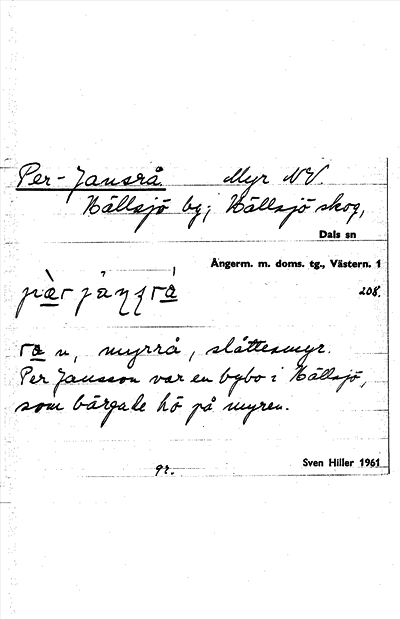 Per-Jansrå. Myr NV.
Hällsjö by; Hällsjö skog,
Dals sn
Ångerm. m. doms. tg., Västern. 1
208.
n, myrrå, slåttesmyr.
Per Jansson var en bybo i Hällsjö,
som bärgade hö på myren.
Sven Hiller 1961